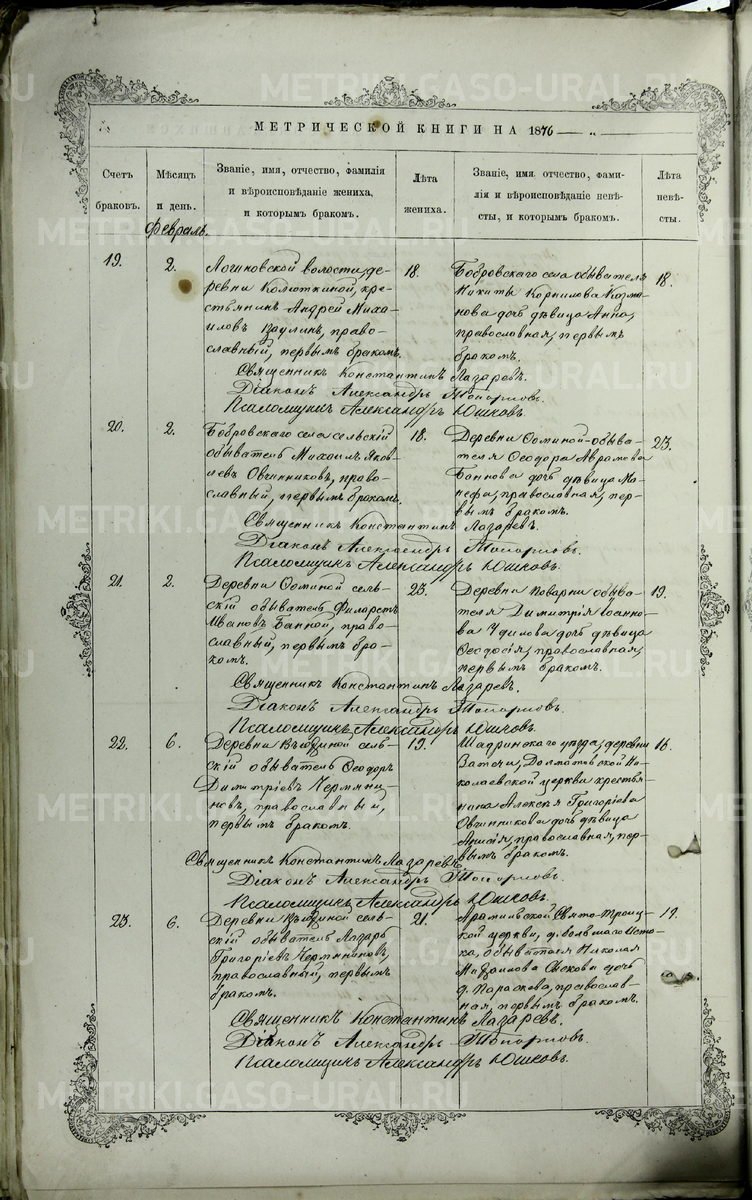 МЕТРИЧЕСКОЙ КНИГИ НА 1876
Счетъ браковъ.
Мѣсяцъ и день.
Званіе, имя, отчество, фамилія
и вѣроисповѣданіе жениха,
и которымъ бракомъ.
Лѣта жениха.
Званіе, имя, отчество, фами-
лія и вѣроисповѣданіе невѣ-
сты, и которымъ бракомъ.
Лѣта невѣ-
сты.
Февраль.
19. 2.
Логиновской волости, де-
ревни Колюткиной, кре-
стьянинъ Андрей Миха-
иловъ Ваулинъ, право-
славный, первымъ бракомъ.
18.
Бобровскаго села обывателя
Никиты Корнилова Козма-
нова дочь дѣвица Анна,
православная, первымъ
бракомъ.
18.
Священникъ Константинъ Лазаревъ.
Діаконъ Александръ Топорковъ.
Псаломщикъ Александръ Юшковъ.
20. 2.
Бобровскаго села сельскій
обыватель Михаилъ Яков-
левъ Овчинниковъ, право-
славный, первымъ бракомъ.
18.
Деревни Ѳоминой обыва-
теля Ѳеодора Аврамова
Баннова дочь дѣвица Ма-
нефа, православная, пер-
вымъ бракомъ.
23.
Священникъ Константинъ Лазаревъ.
Діаконъ Александръ Топорковъ.
Псаломщикъ Александръ Юшковъ.
21. 2.
Деревни Ѳоминой сель-
скій обыватель Филаретъ
Ивановъ Банной, право-
славный, первымъ бра-
комъ.
23.
Деревни Поварни обыва-
теля Димитрія Іоанно-
ва Удилова дочь дѣвица
Ѳеодосія, православная,
первымъ бракомъ.
19.
Священникъ Константинъ Лазаревъ.
Діаконъ Александръ Топорковъ.
Псаломщикъ Александръ Юшковъ.
22. 6.
Деревни сель-
скій обыватель Ѳеодоръ
Димитріевъ Чермяни-
новъ, православный,
первымъ бракомъ.
19.
Шадринскаго уѣзда, деревни
Затечи, Долматовской Ни-
колаевской церкви крестья-
нина Алексѣя Григоріева
Овчинникова дочь дѣвица
Анисія, православная, пер-
вымъ бракомъ.
16.
Священникъ Константинъ Лазаревъ.
Діаконъ Александръ Топорковъ.
Псаломщикъ Александръ Юшковъ.
23. 6.
Деревни сель-
скій обыватель Лазарь
Григоріевъ Чермяниновъ,
православный, первымъ
бракомъ.
21.
Арамильской Свято-Троиц-
кой церкви, д. Большаго Исто-
ка, обывателя Николая
Михаилова дочь
д. Параскева, православ-
ная, первымъ бракомъ.
19.
Священникъ Константинъ Лазаревъ.
Діаконъ Александръ Топорковъ.
Псаломщикъ Александръ Юшковъ.
METRIKI.GASO-URAL.RU